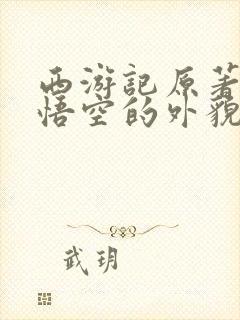 西游記原著
悟空的外貌
武玥